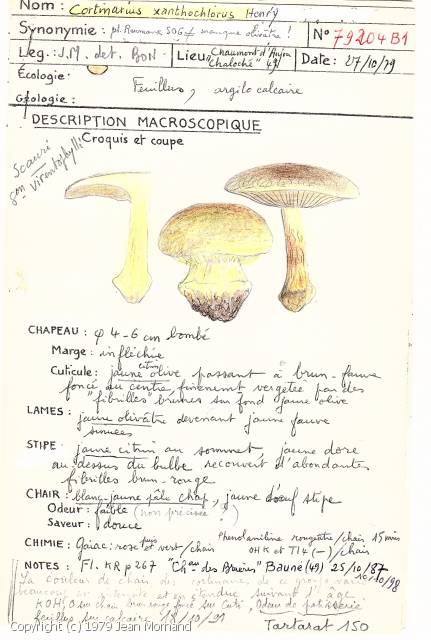 Nom : Cortinarius xanthochlorus Henry
Synonymie : pl. Reumaux 506 manque olivâtre !
N° 79204B1
Leg. J.M. det. BON
Lieu Chaumont d'Anjou
"Chaloché" 49
Date : 27/10/79
Écologie :
Feuillus, argilo calcaire
Géologie :
DESCRIPTION MACROSCOPIQUE
Croquis et coupe
Scauri
virentophylli
CHAPEAU : φ 4-6 cm bombé
Marge : infléchie
citrin
Cuticule : jaune olive passant à brun-fauve
foncé au centre, finement vergetée par des
"fibrilles" brunes sur fond jaune olive
LAMES : jaune olivâtre devenant jaune fauve
sinuées
STIPE : jaune citrin au sommet, jaune doré
au-dessus du bulbe recouvert d'abondantes
fibrilles brun-rouge
CHAIR : blanc-jaune pâle chap, jaune d'oeuf stipe
Odeur : faible (non précisée ?)
Saveur : douce
Phenolaniline rougeâtre/chair 15 min
CHIMIE : Gaïac : rose puis vert/chair OHK et Tl4 (-)/chair
NOTES : Fl. KR p 267 "Chau des Bruères" Bauné (49) 25/10/87
10/10/98
La couleur de chair des cortinaires de ce groupe varie
beaucoup en intensité et en étendue suivant l'âge
KOH, O sur chair, brun rouge foncé sur Cuti, Odeur de patisserie
feuillus sur calcaire 18/10/91
Tartarat 150
Copyright (c) 1979 Jean Mornand